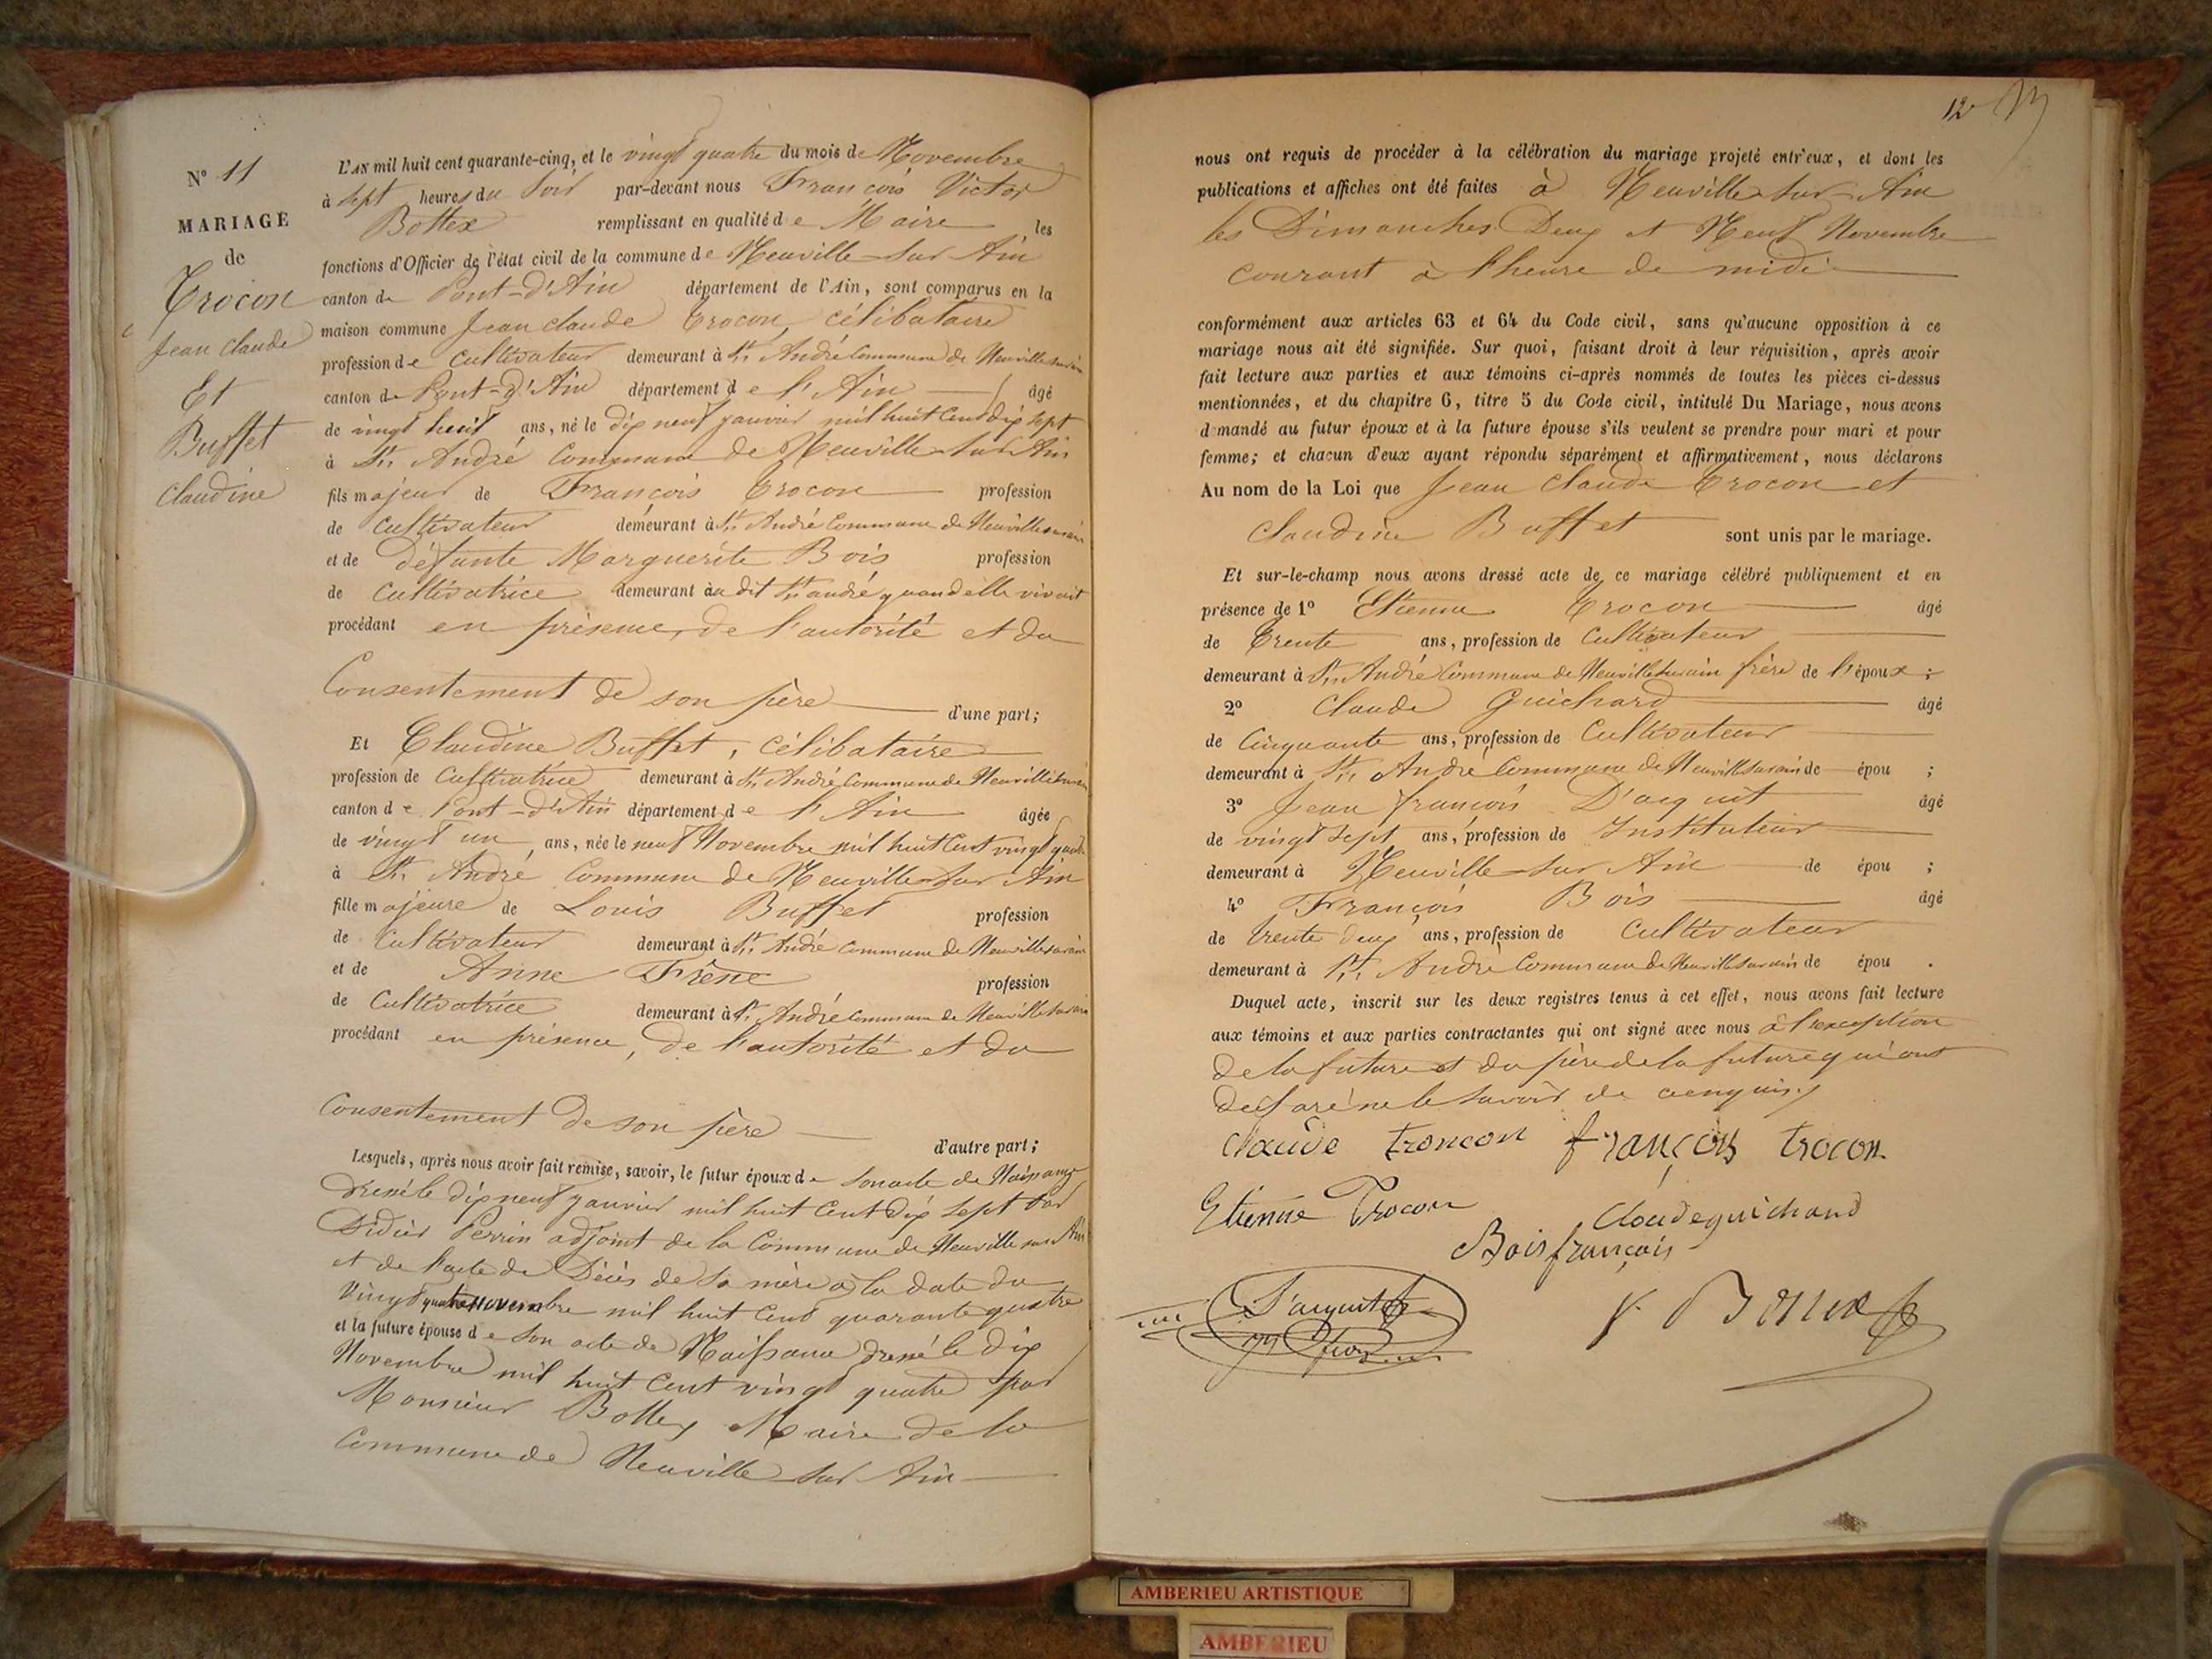 N° 11
MARIAGE
de
Trocon
Jean Claude
Et
Buffet
Claudine
L'AN mil huit cent quarante-cinq, et le vingt quatre du mois de Novembre
à sept heures du Soir par-devant nous François Victor
Bottex remplissant en qualité de Maire les
fonctions d'Officier de l'état civil de la commune de Neuville sur Ain
canton de Pont-d'Ain département de l'Ain, sont comparus en la
maison commune Jean claude Trocon, célibataire
profession de cultivateur demeurant à St. André Commune de Neuville sur ain
canton de Pont-d'Ain département de l'Ain âgé
de vingt huit ans, né le dix neuf janvier mil huit cent dix sept
à St. André Commune de Neuville sur Ain
fils majeur de François Trocon profession
de cultivateur demeurant à St. André Commune de Neuville sur ain
et de défunte Marguerite Bois profession
de Cultivatrice demeurant au dit St. andré quand elle vivait
procédant en présence, de l'autorité et du
Consentement de son père d'une part;
Et Claudine Buffet, célibataire
profession de Cultivatrice demeurant à St. André Commune de Neuville sur ain
canton de Pont-d'Ain département de l'Ain âgée
de vingt un ans, née le neuf Novembre mil huit Cent vingt quatre
à St. André Commune de Neuville sur Ain
fille majeure de Louis Buffet profession
de Cultivateur demeurant à St. André commune de Neuville sur ain
et de Anne Frène profession
de Cultivatrice demeurant à St. André commune de Neuville sur ain
procédant en présence, de l'autorité et du
Consentement de son père d'autre part;
Lesquels, après nous avoir fait remise, savoir, le futur époux de son acte de Naissance
Dressé le dix neuf janvier mil huit Cent dix sept par
Didier Perrin adjoint de la Commune de Neuville sur Ain
et de l'acte de Décès de sa mère à la date du
Vingt quatre novembre mil huit Cent quarante quatre
et la future épouse de son acte de Naissance dressé le dix
Novembre mil huit Cent vingt quatre par
Monsieur Bottex Maire de la
Commune de Neuville sur Ain
12
nous ont requis de procéder à la célébration du mariage projeté entr'eux, et dont les
publications et affiches ont été faites à Neuville sur Ain
les Dimanches Deux et Neuf Novembre
courant à l'heure de midi
conformément aux articles 63 et 64 du Code civil, sans qu'aucune opposition à ce
mariage nous ait été signifiée. Sur quoi, faisant droit à leur réquisition, après avoir
fait lecture aux parties et aux témoins ci-après nommés de toutes les pièces ci-dessus
mentionnées, et du chapitre 6, titre 5 du Code civil, intitulé Du Mariage, nous avons
demandé au futur époux et à la future épouse s'ils veulent se prendre pour mari et pour
femme; et chacun d'eux ayant répondu séparément et affirmativement, nous déclarons
Au nom de la Loi que Jean Claude Trocon et
Claudine Buffet sont unis par le mariage.
Et sur-le-champ nous avons dressé acte de ce mariage célébré publiquement et en
présence de 1° Etienne Trocon âgé
de Trente ans, profession de Cultivateur
demeurant à St. André Commune de Neuville sur ain frère de l'époux;
2° Claude Guichard âgé
de Cinquante ans, profession de Cultivateur
demeurant à St. André Commune de Neuville sur ain de épou ;
3° Jean françois D'acquit âgé
de vingt sept ans, profession de Instituteur
demeurant à Neuville sur Ain de épou ;
4° François Bois âgé
de trente deux ans, profession de Cultivateur
demeurant à St. André Commune de Neuville sur ain de épou .
Duquel acte, inscrit sur les deux registres tenus à cet effet, nous avons fait lecture
aux témoins et aux parties contractantes qui ont signé avec nous à l'exception
de la future et du père de la future qui ont
déclaré ne le savoir de ce enquis.
claude troncon françois trocon
Etienne Trocon
Cloude guichard
Bois françois
D'acquit
V. Bottex
AMBERIEU ARTISTIQUE
AMBERIEU